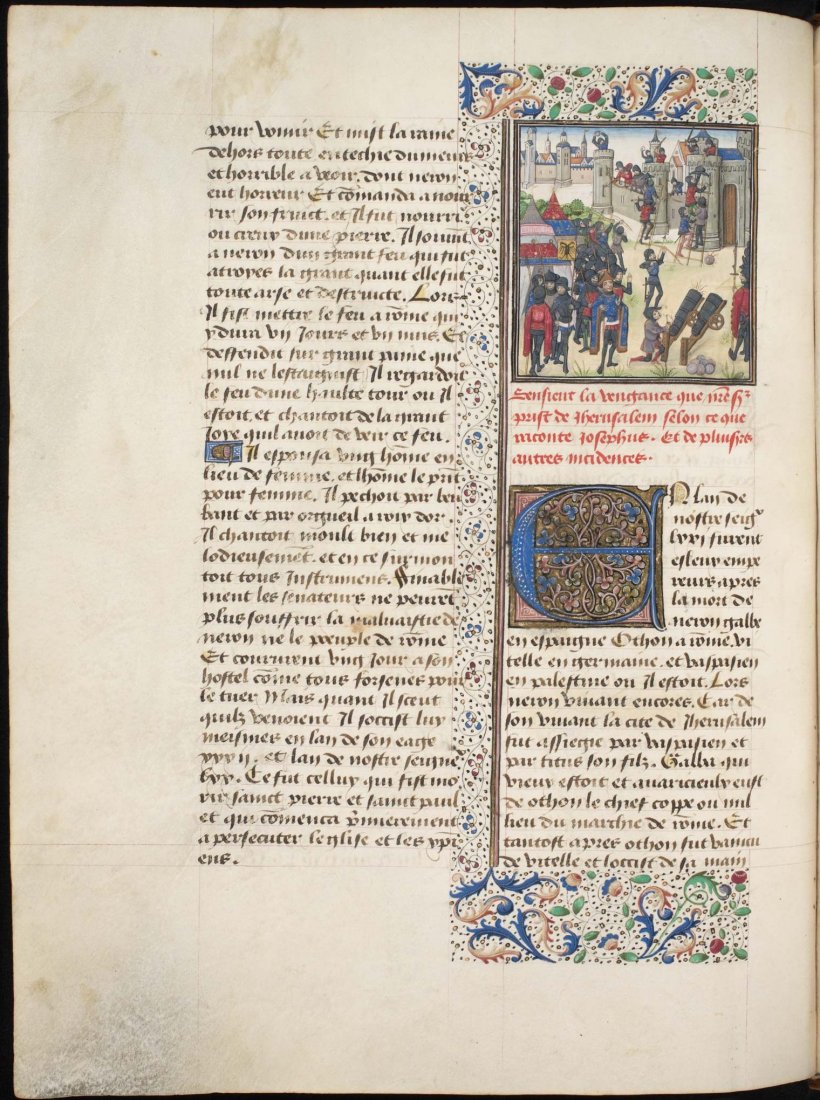 pour vomir Et mist la raine
dehors toute entechie dumeurs
et horrible a veoir. dont neron
eut horreur Et cōmanda a nour
rir son fruict. et Il fut nourri
ou creux dune pierre. Il souuīt
a neron dun grant feu qui fut
a troyes la grant quant elle fut
toute arse et destructe. Lors
Il fist mettre le feu a rōme qui
y dura vij Jours et vij nuis. Et
deffendit sur grant paine que
nul ne lestaignist Il regardoit
le feu dune haulte tour ou Il
estoit. et chantoit de la grant
Joye quil auoit de veir ce feu.
Il espousa vng hōme en
lieu de femme. et lhōme le prīt
pour femme. Il peschou par bou
bant et par orgueil a roiz dor.
Il chantoit moult bien et me
lodieusement. et en ce surmon
toit tous Instrumens. Finable
ment les senateurs ne peurēt
plus souffrir la maluaistie de
neron ne le peuple de rōme
Et coururent vng Jour a son
hostel cōme tous forsenes pour
le tuer Mais quant Il sceut
quilz venoient Il soccist luy
meismes en lan de son eage
xxxij. et lan de nostre seigneur
lxx. Ce fut celluy qui fist mo
rir sainct pierre et sainct paul
et qui cōmenca p̄mierement
a persecuter leglise et les xp̄i
ens.
Censieut la vengance que nr̄e sr̄
prist de Jherusalem selon ce que
raconte Josephus. Et de pluisrs
autres incidences.
EN lan de
nostre seigr̄
lxxj furent
esleuz empe
reurs apres
la mort de
neron galbe
en espaigne Othon a rōme. vi
telle en germanie. et vaspasien
en palestine ou Il estoit. Lors
neron viuant encores. Car de
son viuant la cite de Jherusalem
fut assiegie par vaspasien et
par titus son filz. Galba qui
vieux estoit et auaricieulx eust
de othon le chief coppe ou mil
lieu du marchie de rōme. Et
tantost apres othon fut vaincu
de vitelle et loccist de sa main